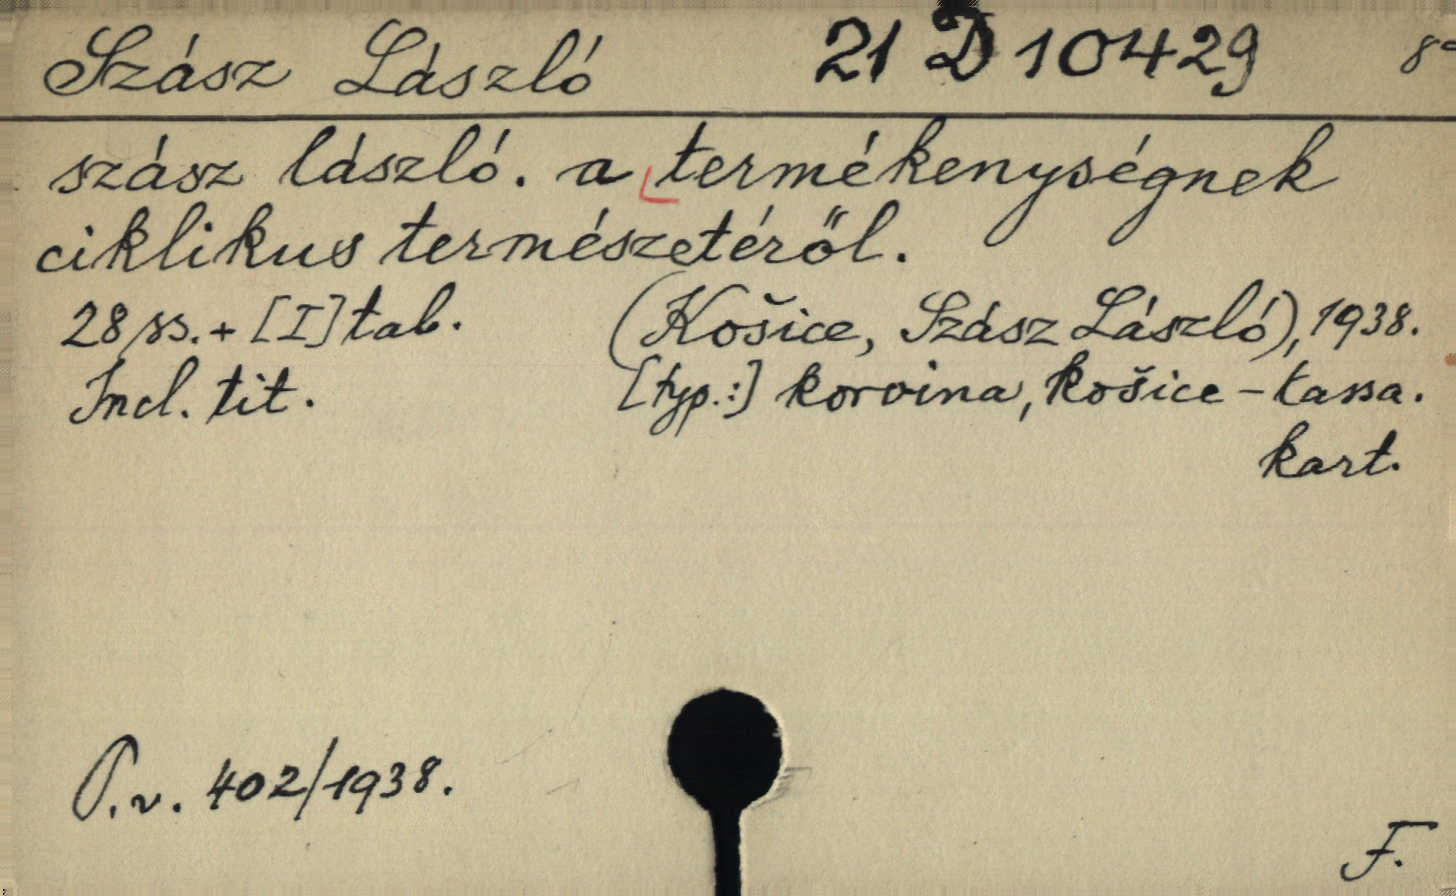 Szász László 21 D 10429 8°
szász lászló. a termékenységnek
ciklikus természetéről.
28 ss. + [I] tab. (Košice, Szász László), 1938.
Incl. tit. [typ.:] korvina, košice - kassa.
kart.
P.v. 402/1938.
F.